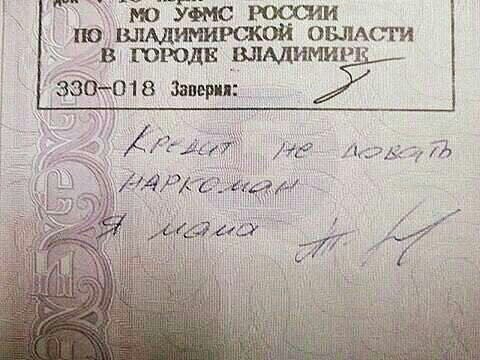 МО УФМС РОССИИ
ПО ВЛАДИМИРСКОЙ ОБЛАСТИ
В ГОРОДЕ ВЛАДИМИРЕ
330-018 Заверил:
Кредит не довать
наркоман
Я мама